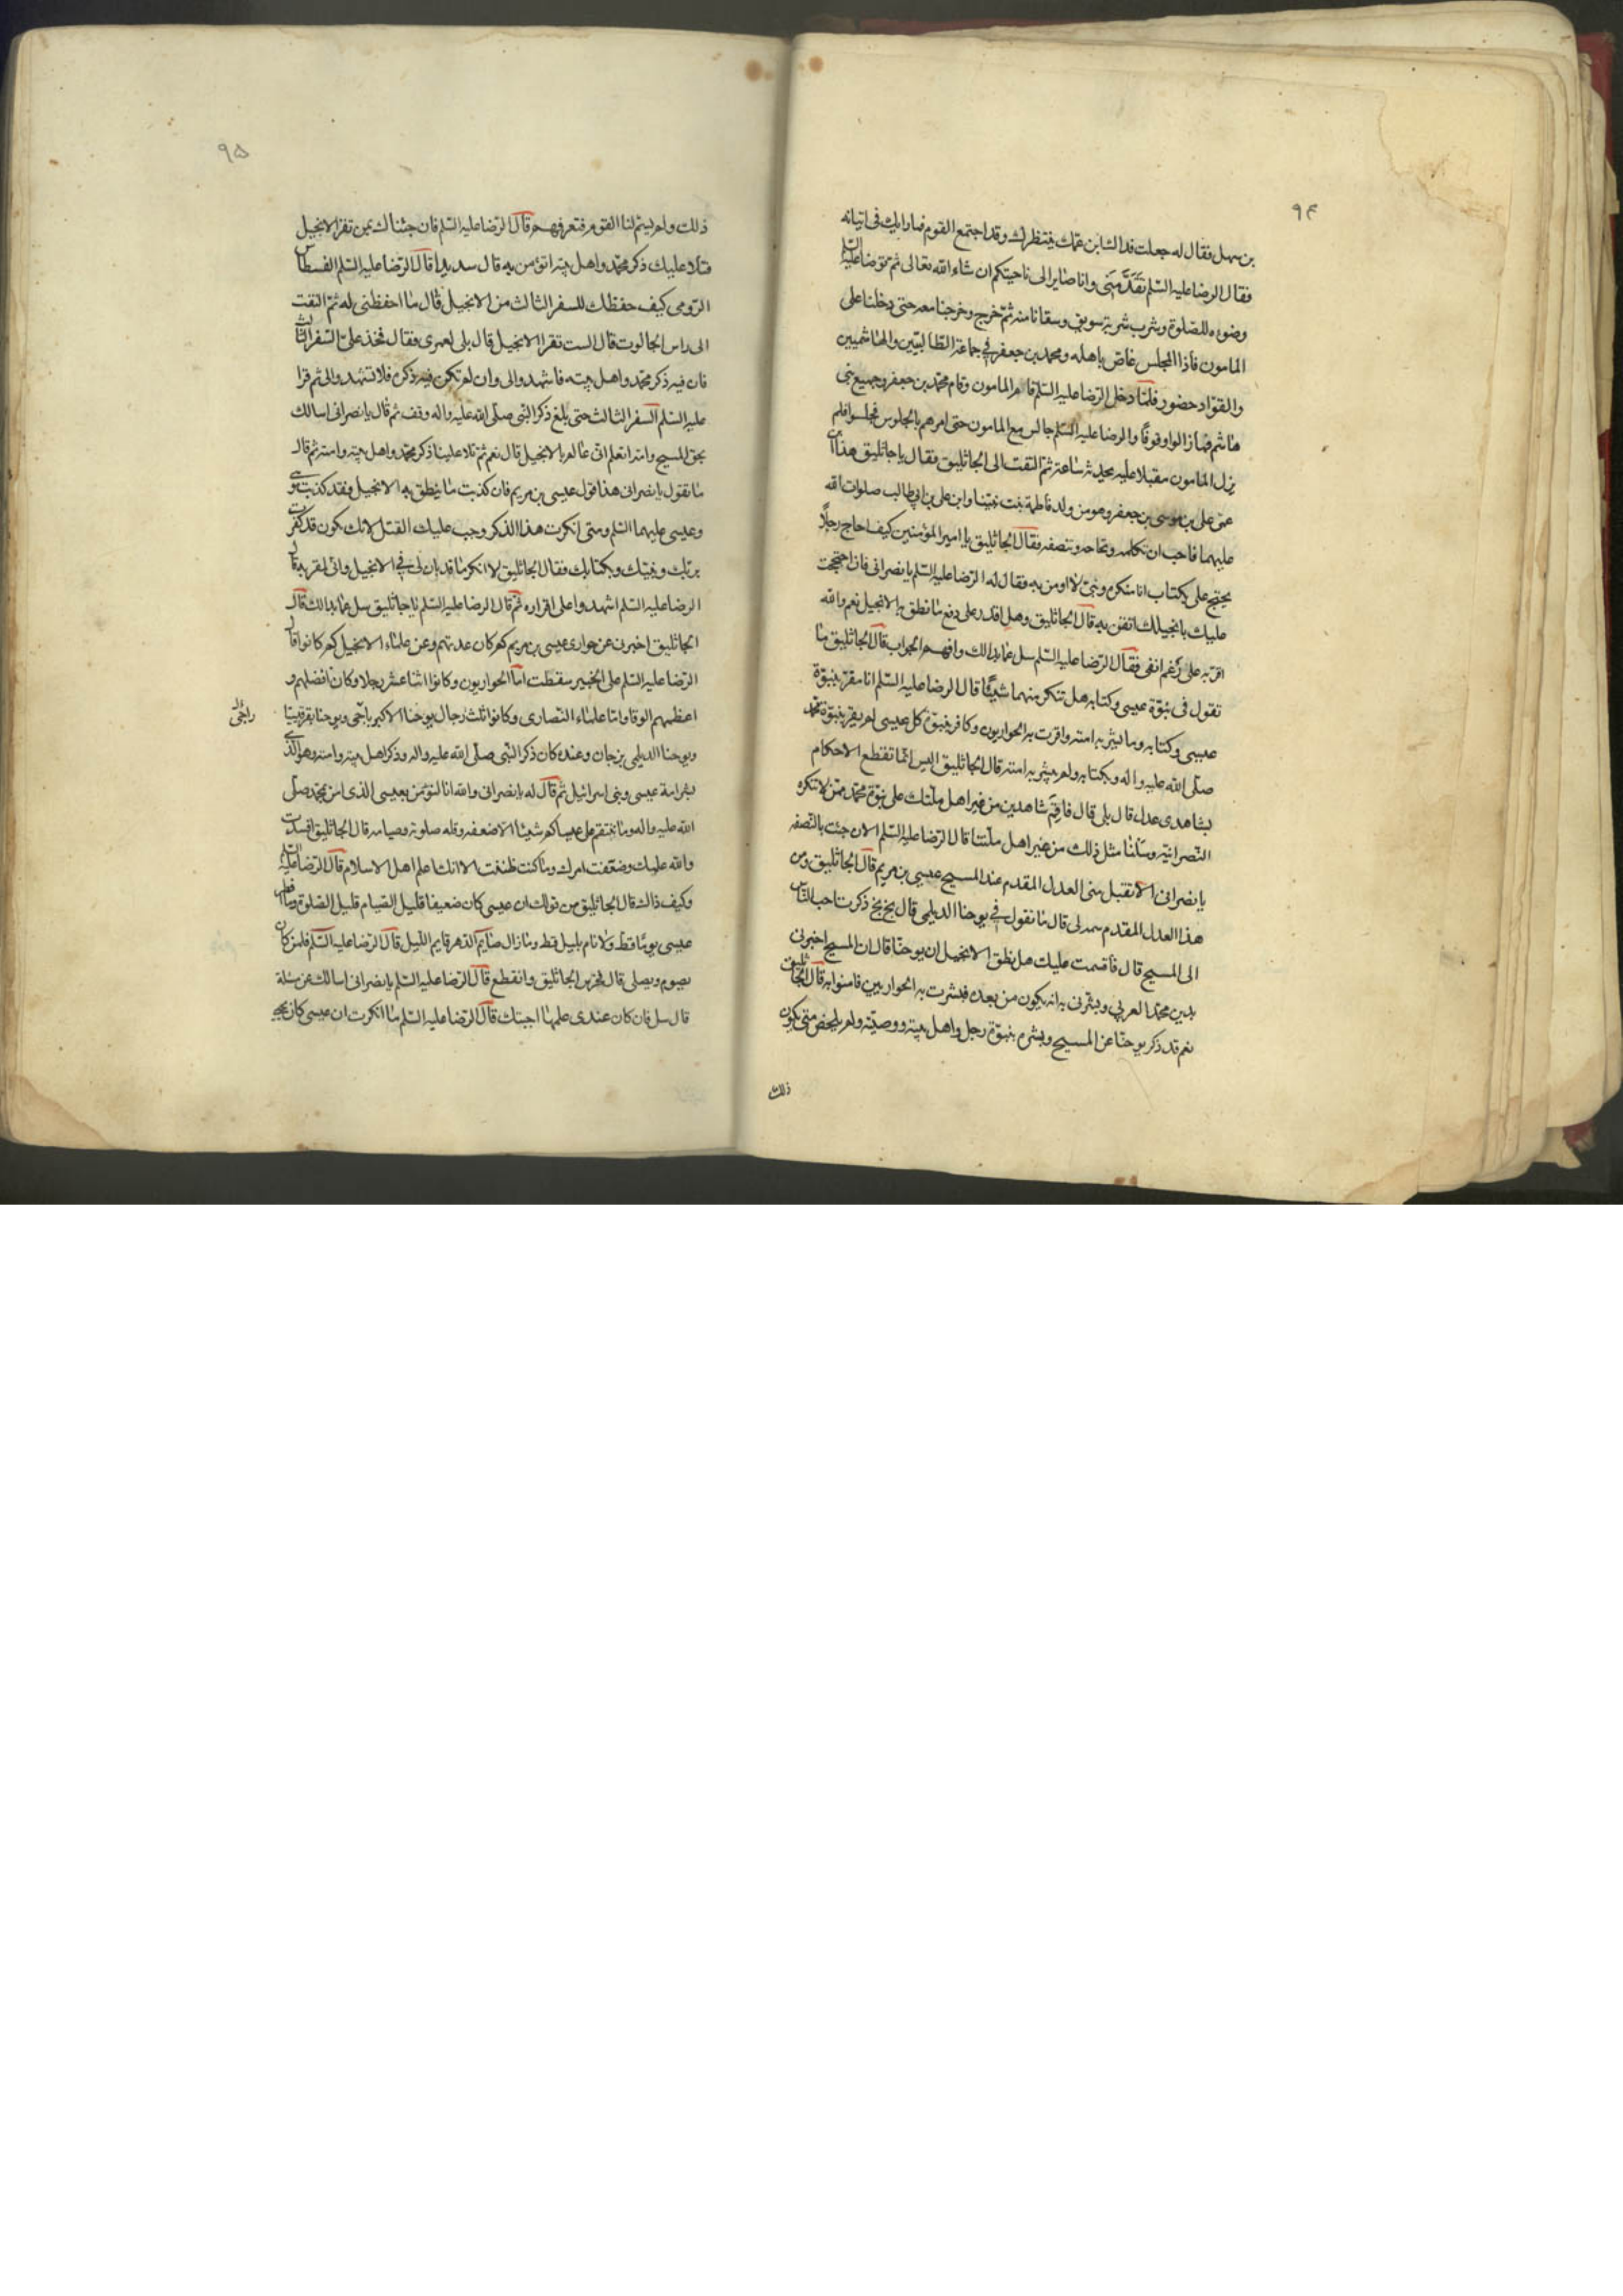 ٩۴
بن سهل فقال له جعلت فداك ان ابن عمك ينتظرك وقد اجتمع القوم فما رايك فى اتيانه
فقال الرضا عليه السّلم تقدّمنى وانا صاير الى ناحيتكم ان شاء الله تعالى ثم توضا عليه السّلم
وضوءه للصلوة وشرب شربة سويق وسقانا منه ثمّ خرج وخرجنا معه حتى دخلنا على
المامون فاذا المجلس غاصّ باهله ومحمد بن جعفر فى جماعة الطالبيّين والهاشميين
والقوّاد حضور فلمّا دخل الرّضا عليه السّلم قام المامون وقام محمّد بن جعفر وجميع بنى
هاشم فما زالوا وقوفًا والرضا عليه السّلم جالس مع المامون حتى امرهم بالجلوس فجلسوا فلم
يزل المامون مقبلا عليه يحدثه ساعة ثمّ التفت الى الجاثليق فقال يا جاثليق هذا ابن
عمى على بن موسى بن جعفر وهو من ولد فاطمة بنت نبيّنا وابن على بن ابى طالب صلوات الله
عليهما فاحب ان تكلمه وتحاجه وتنصفه فقال الجاثليق يا امير المؤمنين كيف احاج رجلًا
يحتج على بكتاب انا منكره ونبىّ لا اومن به فقال له الرّضا عليه السّلم يا نصرانى فان احتججت
عليك بانجيلك اتقر به قال الجاثليق وهل اقدر على دفع ما نطق به الانجيل نعم والله
اقر به على رغم انفى فقال الرّضا عليه السّلم سل عمّا بدا لك وافهم الجواب قال الجاثليق ما
تقول فى نبوّة عيسى وكتابه هل تنكر منهما شيئًا قال الرضا عليه السّلم انا مقرّ بنبوّة
عيسى وكتابه وما بشّر به امته واقرت به الحواريون وكافر بنبوّة كل عيسى لم يقر بنبوّة محمّد
صلّى الله عليه واله وبكتابه ولم يبشر به امته قال الجاثليق اليس انّما تقطع الاحكام
بشاهدى عدل قال بلى قال فاقم شاهدين من غير اهل ملّتك على نبوّة محمّد ممّن لا تنكره
النّصرانيّة وسلنا مثل ذلك من غير اهل ملّتنا قال الرّضا عليه السّلم الان جئت بالنّصفة
يا نصرانى الا تقبل منى العدل المقدم عند المسيح عيسى بن مريم قال الجاثليق ومن
هذا العدل المقدم سمه لى قال ما تقول فى يوحنا الديلمى قال بخ بخ ذكرت احب النّاس
الى المسيح قال فاقسمت عليك هل نطق الانجيل ان يوحنّا قال ان المسيح اخبرنى
بدين محمّد العربى وبشّرنى به انه يكون من بعده فبشرت به الحواريين فامنوا به قال الجاثليق
نعم قد ذكر يوحنّا عن المسيح وبشّر بنبوّة رجل واهل بيته ووصيّته ولم يلخص متى يكون
ذلك
٩۵
ذلك ولم يسمّ لنا القوم فنعرفهم قال الرّضا عليه السّلم فان جئناك بمن تقرا الانجيل
فتلا عليك ذكر محمّد واهل بيته اتؤمن به قال سديدا قال الرّضا عليه السّلم لفسطاس
الرّومى كيف حفظك للسفر الثالث من الانجيل قال ما احفظنى له ثمّ التفت
الى راس الجالوت قال الست تقرا الانجيل قال بلى لعمرى فقال فخذ علىّ السّفر الثالث
فان فيه ذكر محمّد واهل بيته فاشهدوا لى وان لم تكن فيه ذكره فلا تشهدوا لى ثم قرا
عليه السّلم السفر الثالث حتى بلغ ذكر النّبى صلّى الله عليه واله وقف ثم قال يا نصرانى اسالك
بحق المسيح وامه اتعلم انى عالم بالانجيل قال نعم ثمّ تلا علينا ذكر محمّد واهل بيته وامته ثم قال
ما تقول يا نصرانى هذا قول عيسى بن مريم فان كذبت ما ينطق به الانجيل فقد كذبت موسى
وعيسى عليهما السّلم ومتى انكرت هذا الذكر وجب عليك القتل لانك تكون قد كفرت
بربّك ونبيّك وبكتابك فقال الجاثليق لا انكر ما قد بان لى فى الانجيل وانى لمقر به قال
الرضا عليه السّلم اشهدوا على اقراره ثمّ قال الرضا عليه السّلم يا جاثليق سل عمّا بدا لك قال
الجاثليق اخبرنى عن حوارى عيسى بن مريم كم كان عدتهم وعن علماء الانجيل كم كانوا قال
الرّضا عليه السّلم على الخبير سقطت امّا الحواريون وكانوا اثنا عشر رجلا وكان افضلهم و
اعظمهم الوقا وامّا علماء النّصارى وكانوا ثلث رجال يوحنّا الاكبر باجّى ويوحنا بقرقيسا
ويوحنا الديلمى بزجان وعنده كان ذكر النّبى صلّى الله عليه واله وذكر اهل بيته وامته وهو الّذى
بشر امة عيسى وبنى اسرائيل ثمّ قال له يا نصرانى والله انا لنؤمن بعيسى الذى امن بمحمّد صلّى
الله عليه واله وما ننقم على عيساكم شيئا الّا ضعفه وقلة صلوته وصيامه قال الجاثليق افسدت
والله علمك وضعّفت امرك وما كنت ظننت الا انك اعلم اهل الاسلام قال الرّضا عليه السّلم
وكيف ذاك قال الجاثليق من قولك ان عيسى كان ضعيفا قليل الصّيام قليل الصّلوة وما افطر
عيسى يومًا قط ولا نام بليل قط وما زال صايم الدّهر قايم اللّيل قال الرّضا عليه السّلم فلمن كان
يصوم ويصلى قال فخرس الجاثليق وانقطع قال الرّضا عليه السّلم يا نصرانى اسالك عن مسئلة
قال سل فان كان عندى علمها اجبتك قال الرّضا عليه السّلم ما انكرت ان عيسى كان يحيى